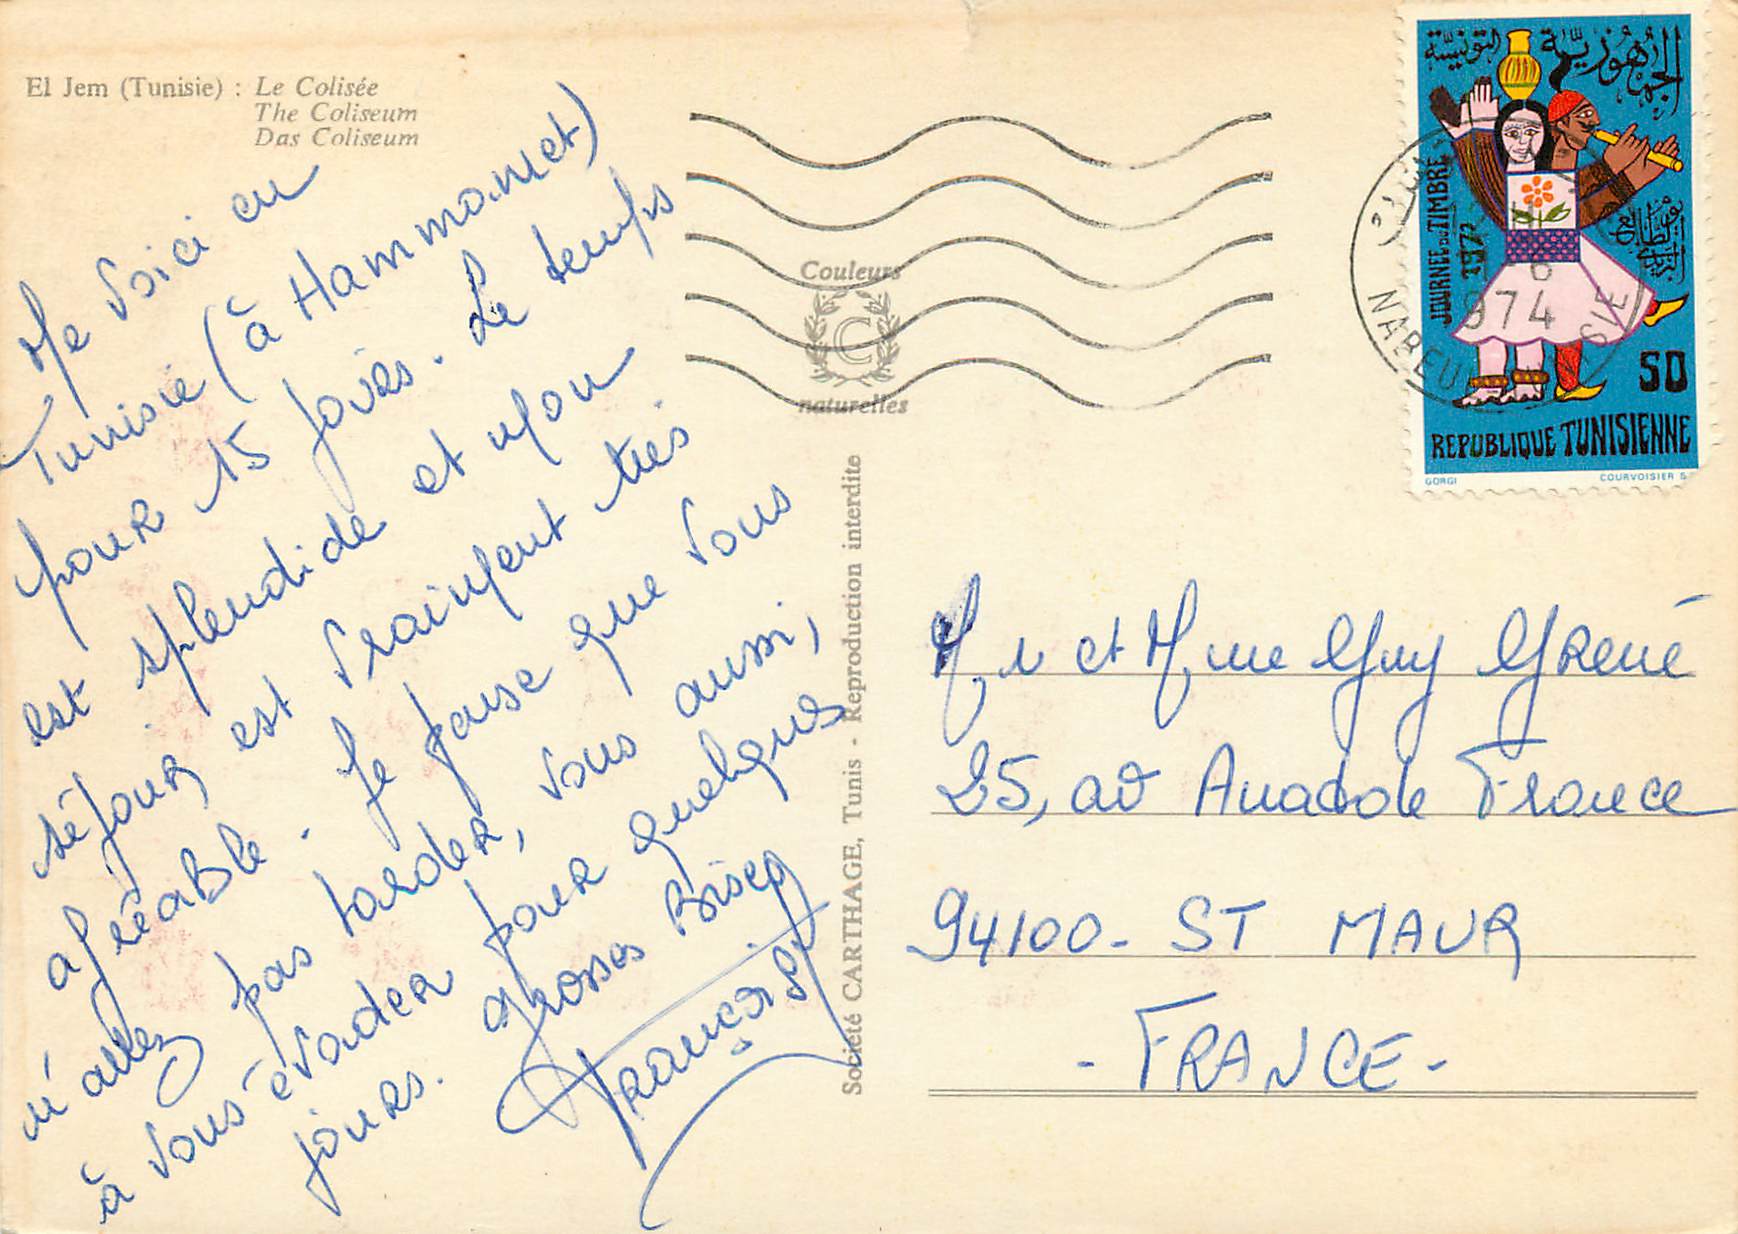 El Jem (Tunisie) : Le Colisée
The Coliseum
Das Coliseum
Me voici en
Tunisie (à Hammamet)
pour 15 jours. Le temps
est splendide et mon
séjour est vraiment très
agréable. Je pense que vous
n'allez pas tarder, vous aussi,
à vous évader pour quelques
jours. Grosses Bises
Françoise
Couleurs
C
naturelles
Société CARTHAGE, Tunis - Reproduction interdite
الجمهورية التونسية
JOURNEE DU TIMBRE
1973
50
REPUBLIQUE TUNISIENNE
GORGI
COURVOISIER S
NABEUL
6
974
SIE
Mr et Mme Guy Grené
25, av Anatole France
94100 - ST MAUR
- FRANCE -